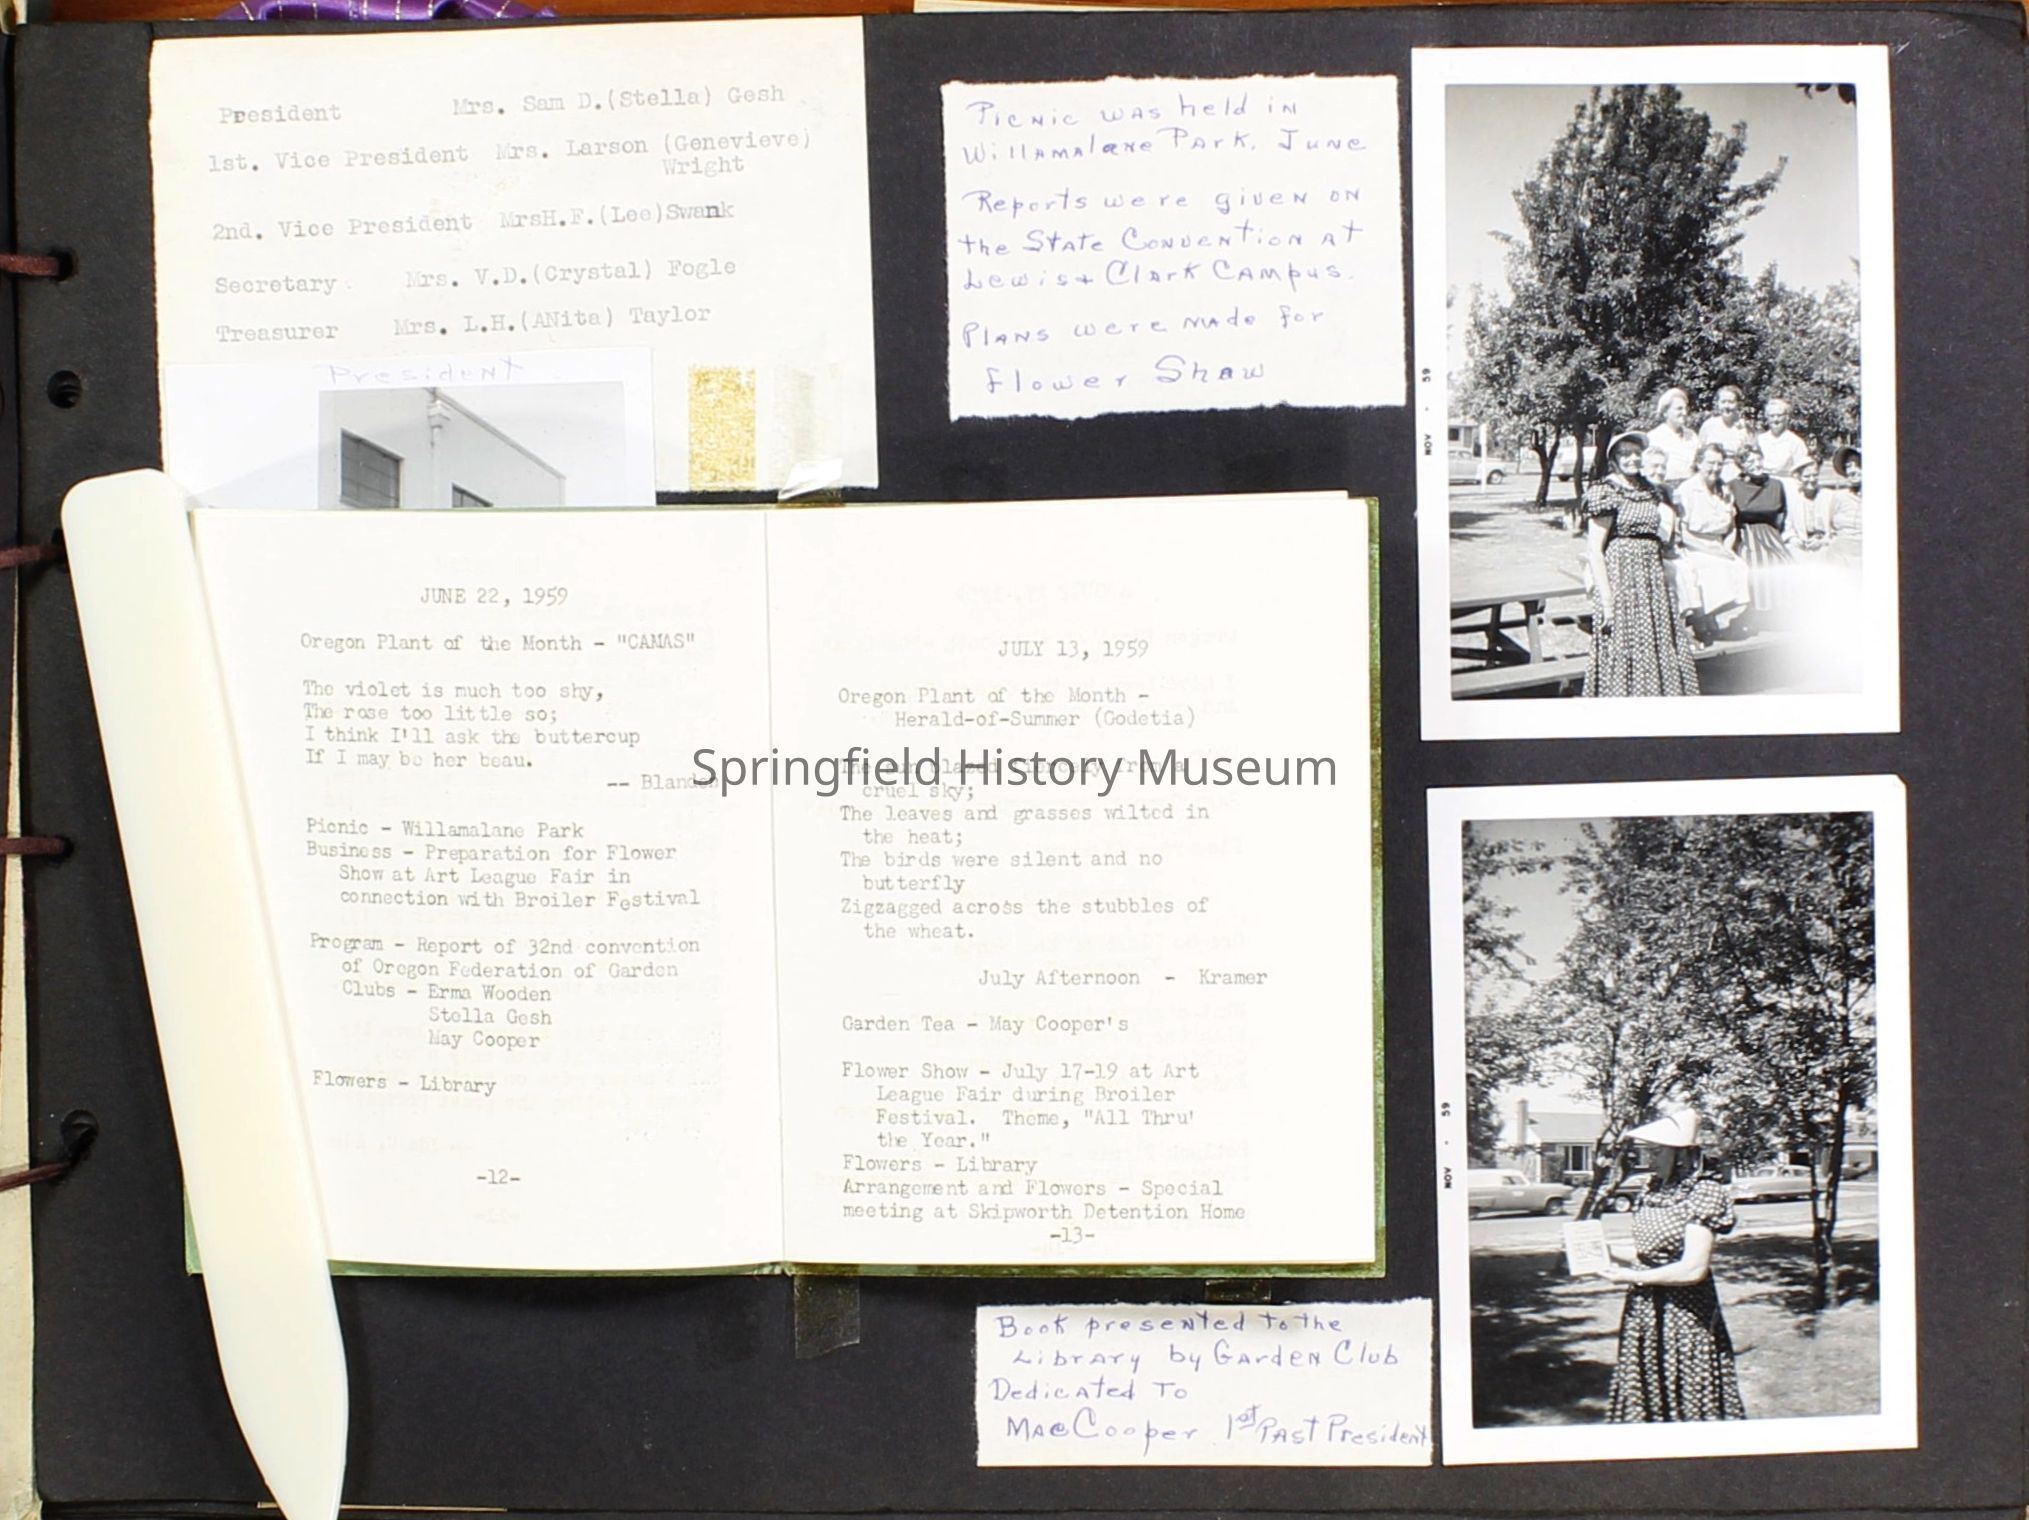 President Mrs. Sam D.(Stella) Gesh
1st. Vice President Mrs. Larson (Genevieve)
Wright
2nd. Vice President MrsH.F.(Lee)Swank
Secretary Mrs. V.D.(Crystal) Fogle
Treasurer Mrs. L.H.(ANita) Taylor
President
Picnic was held in
Willamalane Park, June
Reports were given on
the State Convention at
Lewis + Clark Campus.
Plans were made for
Flower Shaw
NOV · 59
JUNE 22, 1959
Oregon Plant of the Month - "CAMAS"
The violet is much too shy,
The rose too little so;
I think I'll ask the buttercup
If I may be her beau.
-- Blanden
Picnic - Willamalane Park
Business - Preparation for Flower
Show at Art League Fair in
connection with Broiler Festival
Program - Report of 32nd convention
of Oregon Federation of Garden
Clubs - Erma Wooden
Stella Gesh
May Cooper
Flowers - Library
-12-
JULY 13, 1959
Oregon Plant of the Month -
Herald-of-Summer (Godetia)
The sun blazed fiercely from a
cruel sky;
The leaves and grasses wilted in
the heat;
The birds were silent and no
butterfly
Zigzagged across the stubbles of
the wheat.
July Afternoon - Kramer
Garden Tea - May Cooper's
Flower Show - July 17-19 at Art
League Fair during Broiler
Festival. Theme, "All Thru'
the Year."
Flowers - Library
Arrangement and Flowers - Special
meeting at Skipworth Detention Home
-13-
Springfield History Museum
NOV · 59
Book presented to the
Library by Garden Club
Dedicated To
Mae Cooper 1st Past President